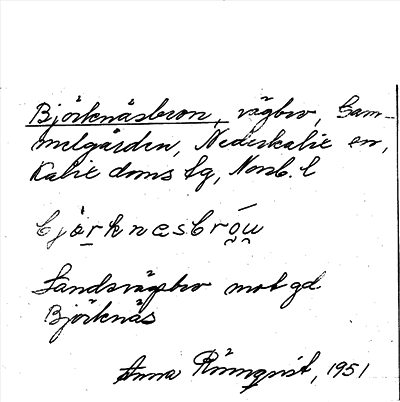 Björknäsbron, vägbro, Gam-
melgården, Nederkalix sn,
Kalix doms fg, Norrb. l
bjørknesbrow
Landsvägsbro mot gd
Björknäs
Anna Rönnqvist, 1951